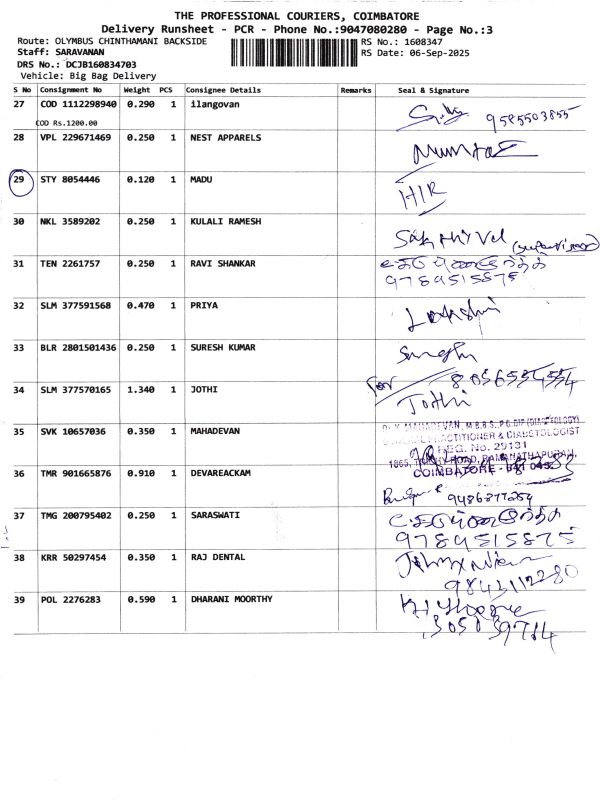 THE PROFESSIONAL COURIERS, COIMBATORE
Delivery Runsheet - PCR - Phone No.:9047080280 - Page No.:3
Route: OLYMBUS CHINTHAMANI BACKSIDE RS No.: 1608347
Staff: SARAVANAN RS Date: 06-Sep-2025
DRS No.: DCJB160834703
Vehicle: Big Bag Delivery
S No Consignment No Weight PCS Consignee Details Remarks Seal & Signature
27 COD 1112298940 0.290 1 ilangovan
COD Rs.1200.00
9585503855
28 VPL 229671469 0.250 1 NEST APPARELS
Mumtaz
29 STY 8054446 0.120 1 MADU
HIR
30 NKL 3589202 0.250 1 KULALI RAMESH
Sakthivel
31 TEN 2261757 0.250 1 RAVI SHANKAR
9789515875
32 SLM 377591568 0.470 1 PRIYA
33 BLR 2801501436 0.250 1 SURESH KUMAR
34 SLM 377570165 1.340 1 JOTHI
for
Jothi
35 SVK 10657036 0.350 1 MAHADEVAN
MAHADEVAN, M.B.B.S.,
PRACTITIONER & DIABETOLOGIST
REG. No. 29131
ROAD, RAMANATHAPURAM,
COIMBATORE
36 TMR 901665876 0.910 1 DEVAREACKAM
37 TMG 200795402 0.250 1 SARASWATI
9789515875
38 KRR 50297454 0.350 1 RAJ DENTAL
9843112280
39 POL 2276283 0.590 1 DHARANI MOORTHY